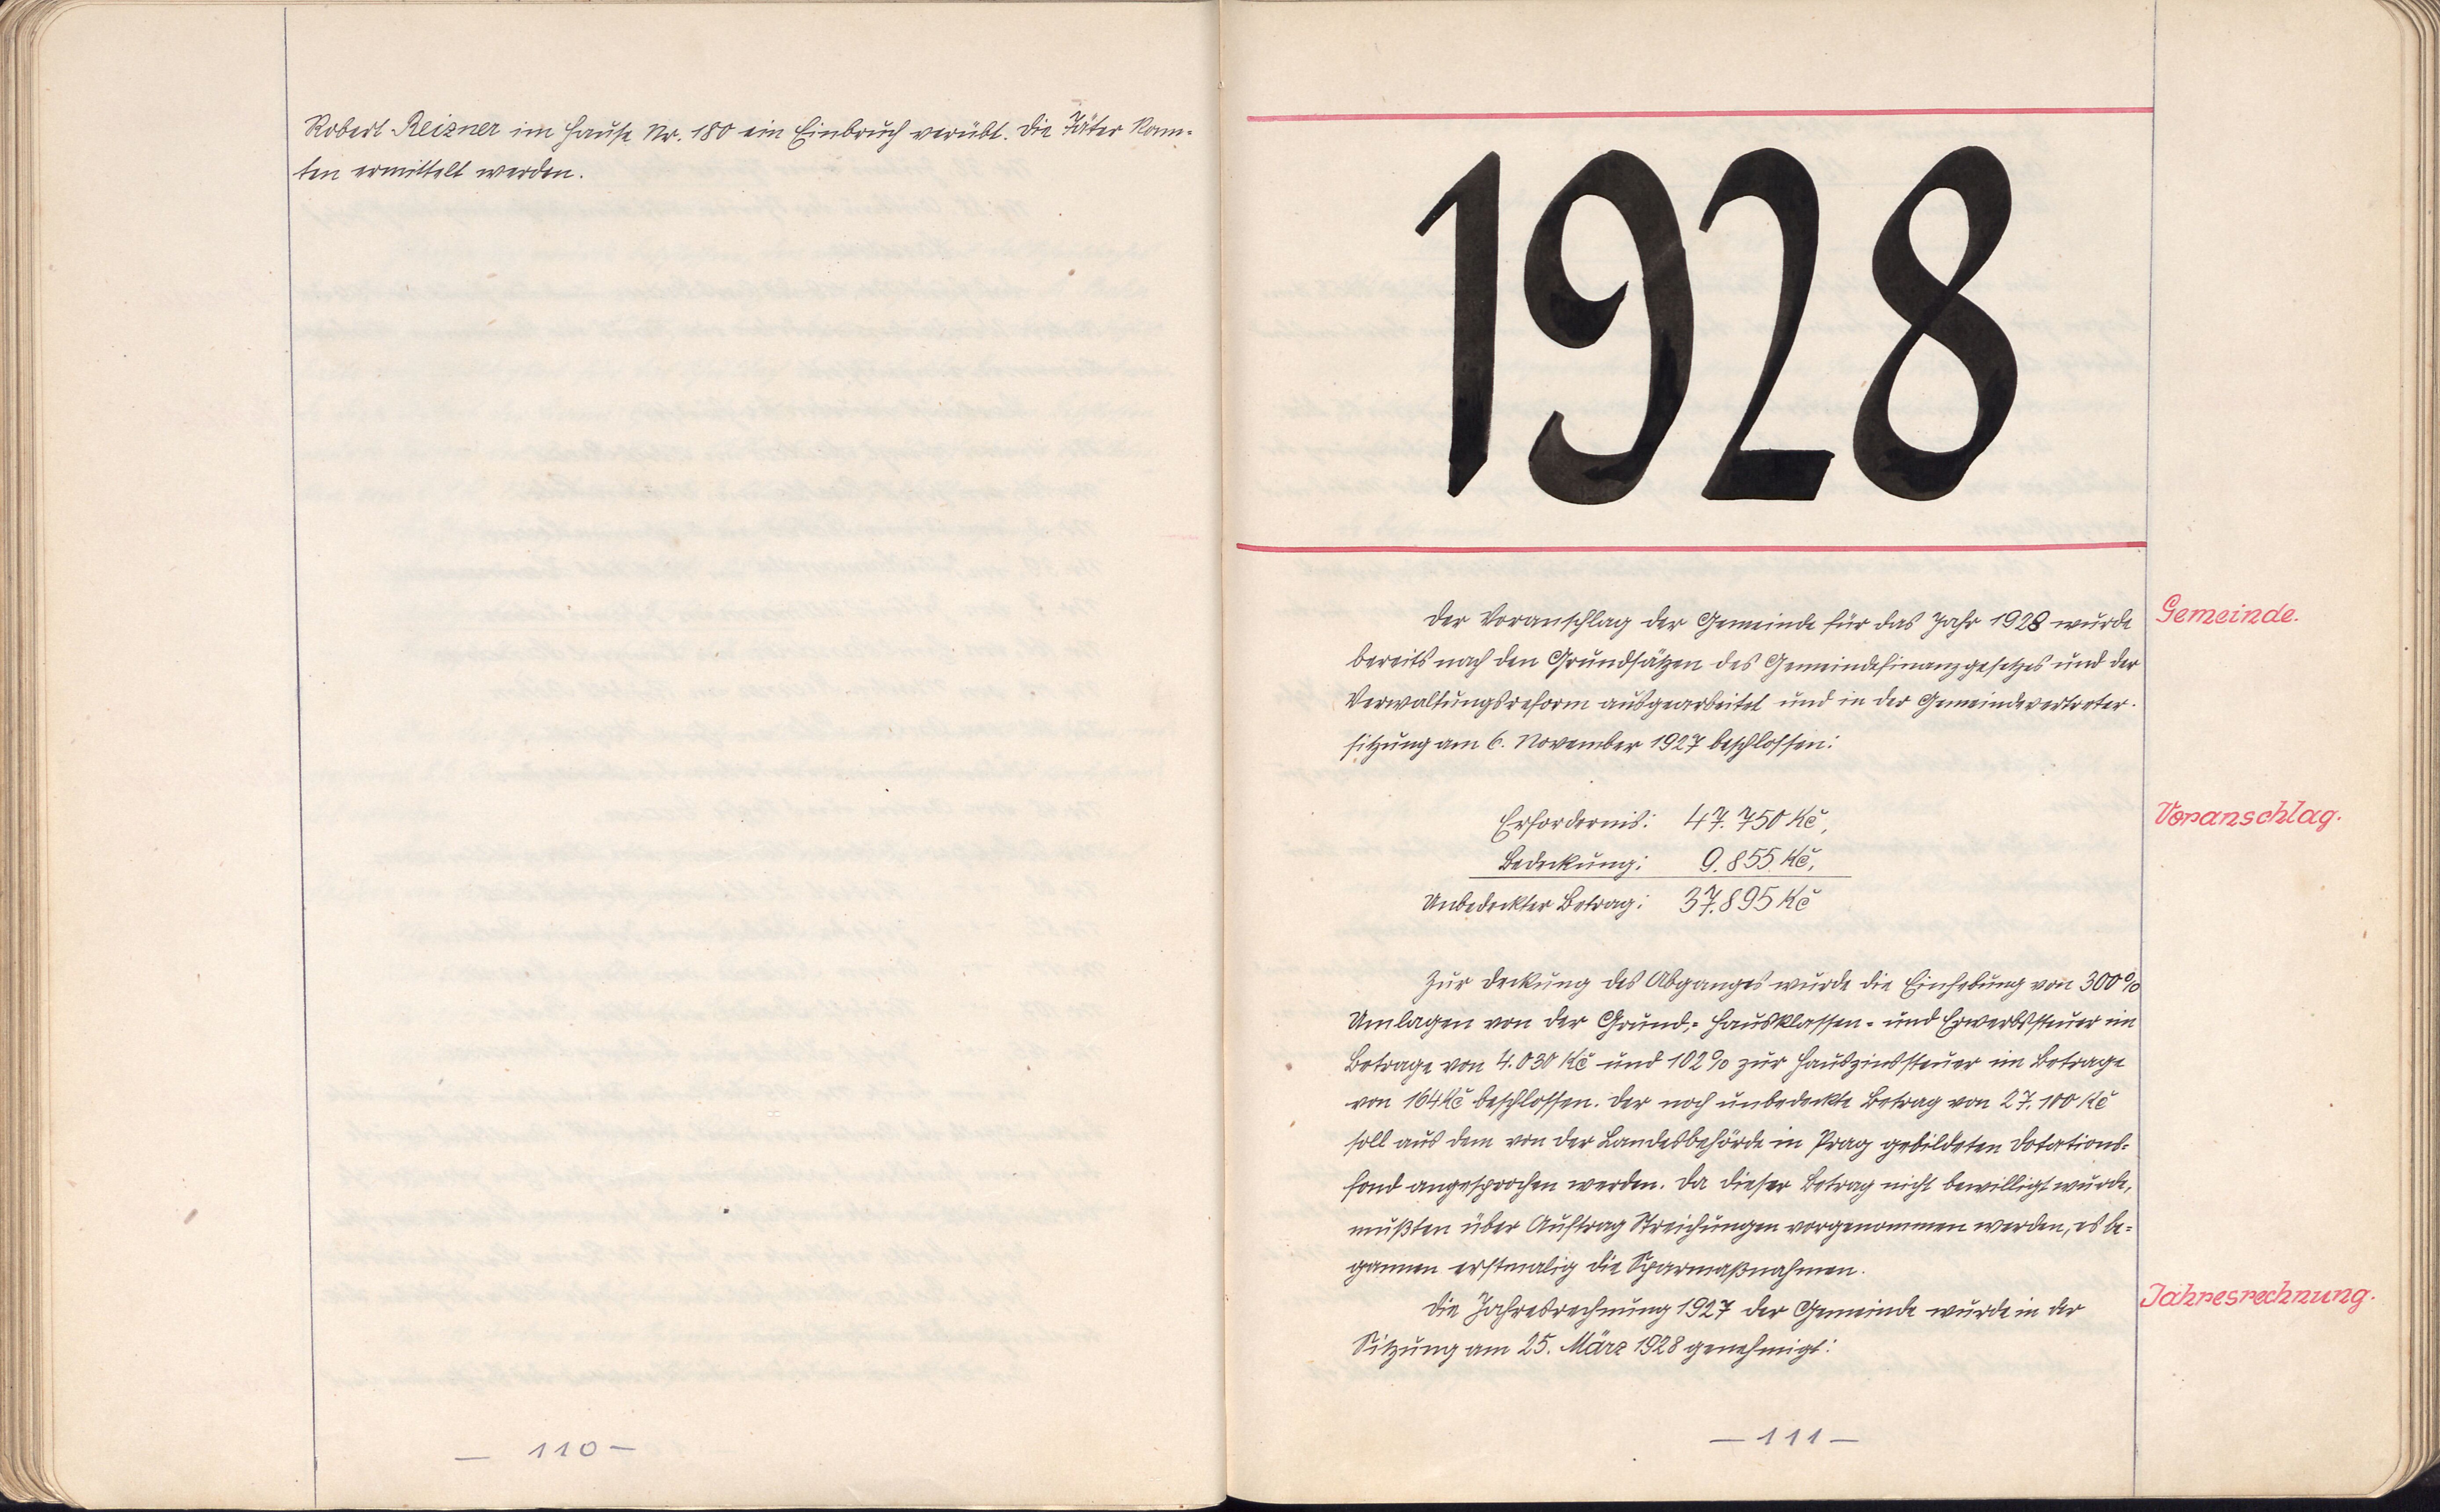 Robert Reizner im Hause Nr. 180 ein Einbruch verübt. Die Täter konn-
ten ermittelt werden.
- 110 -
1928
Der Voranschlag der Gemeinde für das Jahr 1928 wurde
Gemeinde.
bereits nach den Grundsätzen des Gemeindefinanzgesetzes und der
Verwaltungsreform ausgearbeitet und in der Gemeindevertreter-
sitzung am 6. November 1927 beschlossen:
Erfordernis: 47.750 Kč,
Voranschlag.
Bedeckung: 9.855 Kč,
Unbedeckter Betrag: 37.895 Kč
Zur Deckung des Abganges wurde die Einhebung von 300%
Umlagen von der Grund-, Hausklassen- und Erwerbsteuer im
Betrage von 4.030 Kč und 102% zur Hauszinssteuer im Betrage
von 164 Kč beschlossen. Der noch unbedeckte Betrag von 27.100 Kč
soll aus dem von der Landesbehörde in Prag gebildeten Dotations-
fond angesprochen werden. Da dieser Betrag nicht bewilligt wurde,
mußten über Auftrag Streichungen vorgenommen werden, es be-
gannen erstmalig die Sparmaßnahmen.
Die Jahresrechnung 1927 der Gemeinde wurde in der
Jahresrechnung.
Sitzung am 25. März 1928 genehmigt:
- 111 -